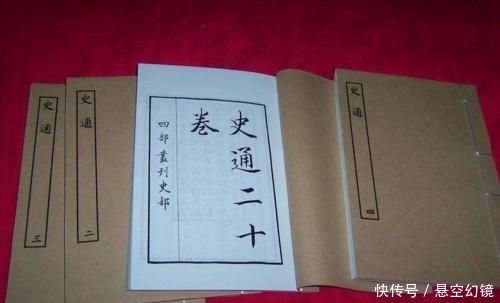 史通
三
史通
二
史通二十
卷
四部叢刊史部
史通
四
快传号／悬空幻镜